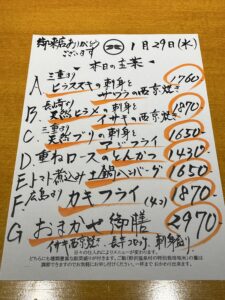 御来店ありがとうございます
1月29日(水)
本日の主菜
A. 三重より ヒラスズキの刺身と
サワラの西京焼き 1760
B. 長崎より 天然ヒラメの刺身と
イサキの西京焼き 1870
C. 三重より 天然ブリの刺身と
アジフライ 1650
D. 重ねロースのとんかつ 1430
E. トマト煮込み土鍋ハンバーグ 1650
F. 広島より カキフライ (4コ) 1870
G おまかせ御膳 2970
イサキ西京焼き、長芋
日々の仕入れによりメニューが変わります。